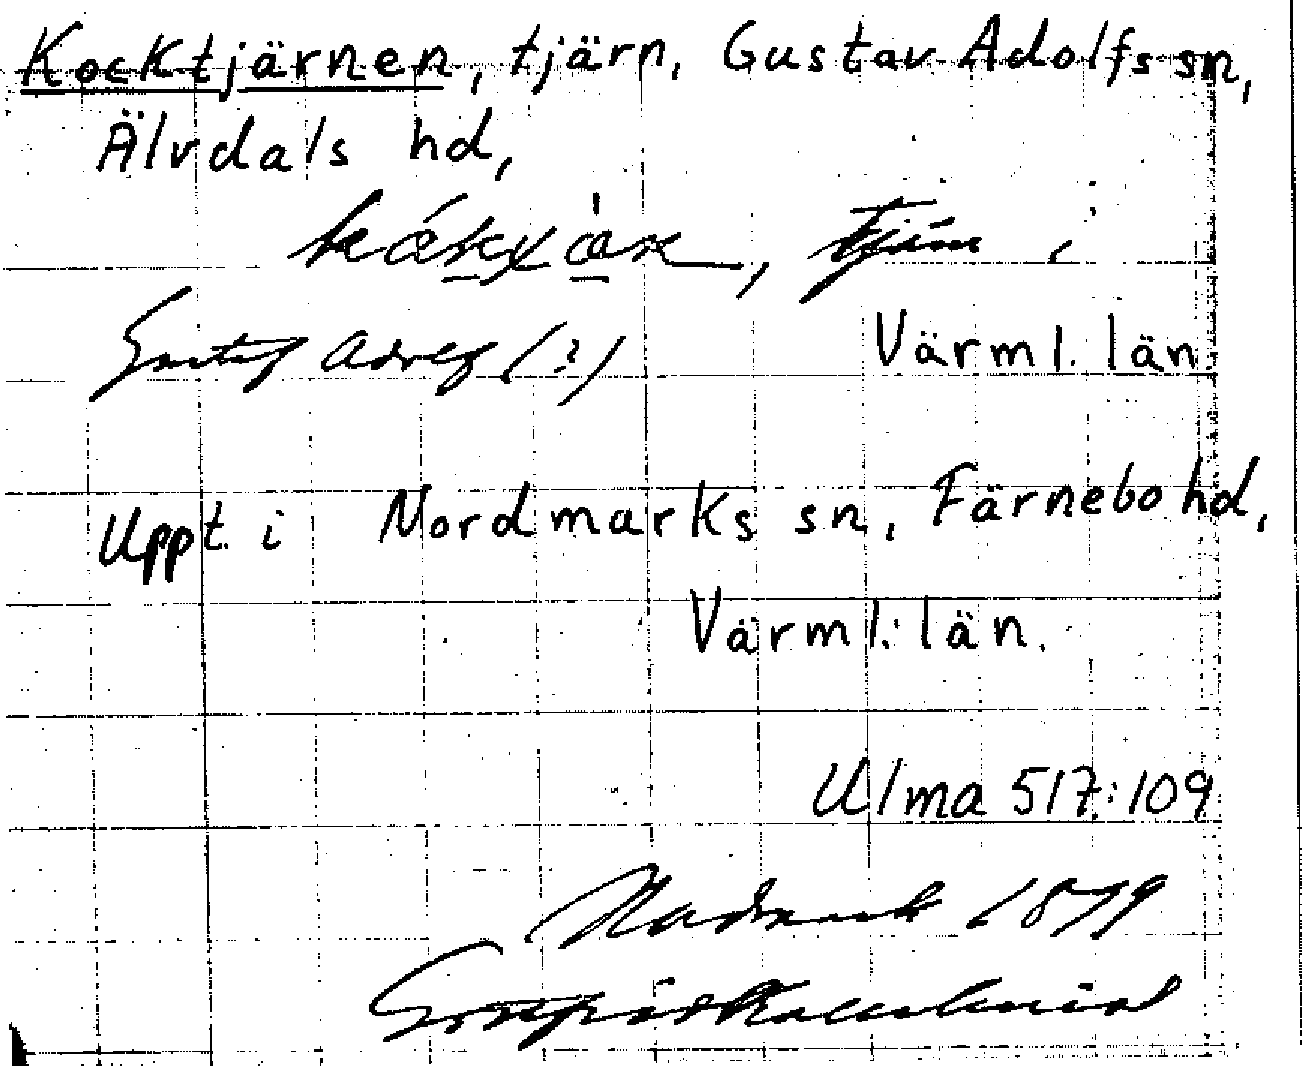 Kocktjärnen, tjärn, Gustav Adolfs sn,
Älvdals hd,
tjärn i
Gustaf Adolf (?) Värml. län
Uppt. i Nordmarks sn, Färnebo hd,
Värml. län.
Ulma 517:109
Nordmark 1879